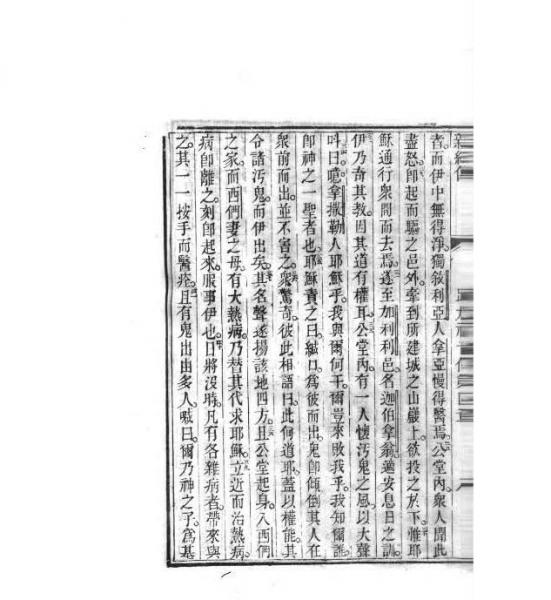 者。而伊中無得淨。獨敘利亞人拿亞慢得醫焉。公堂內。眾人聞此
盡怒。即起而驅之邑外。牽到所建城之山巖上。欲投之於下。惟耶
穌通行眾間而去焉。遂至加利利邑。名迦伯拿翁。適安息日之訓。
伊乃奇其教。因其道有權耳。公堂內。有一人懷汚鬼之風。以大聲
呌曰。噫。拿撒勒人耶穌乎。我與爾何干。爾豈來敗我乎。我知爾誰。
即神之一聖者也。耶穌責之曰。緘口。為彼而出。鬼即傾倒其人在
眾前而出。並不害之。眾驚奇。彼此相語曰。此何道耶。蓋以權能其
令諸汚鬼。而伊出矣。其名聲遂揚該地四方。且公堂起身。入西們
之家。而西們妻之母。有大熱病。乃替其代求耶穌。立近而治熱病。
病即離之。刻即起來。服事伊也。日將沒時。凡有各雜病者。帶來與
之。其一一按手而醫痊。且有鬼出由多人。喊曰。爾乃神之子。為基